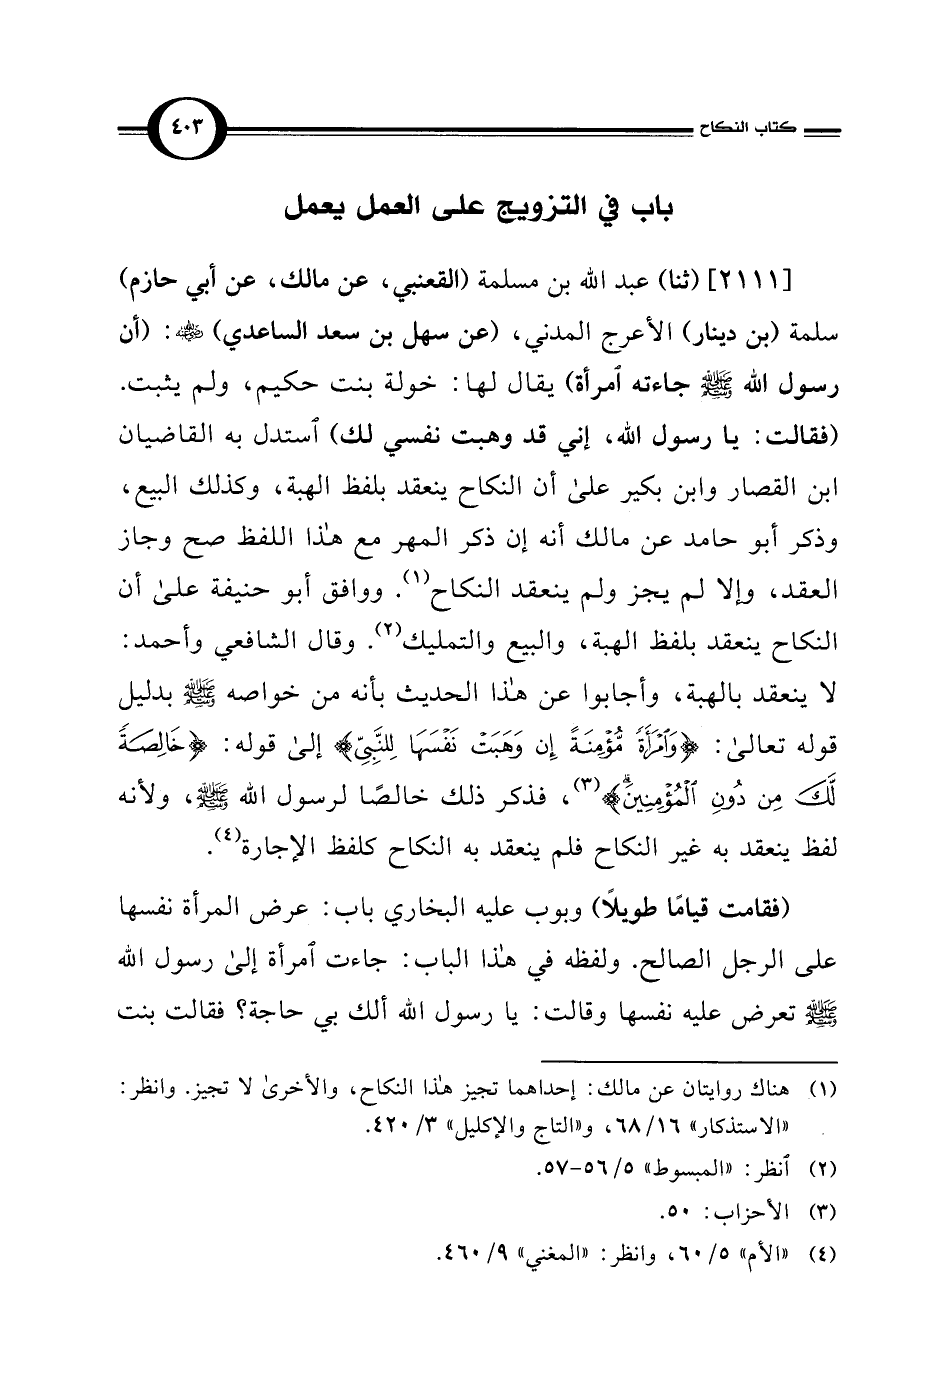 كتاب النكاح ٤٠٣
باب في التزويج على العمل يعمل
[٢١١١] (ثنا) عبد الله بن مسلمة (القعنبي، عن مالك، عن أبي حازم)
سلمة (بن دينار) الأعرج المدني، (عن سهل بن سعد الساعدي) رضي الله عنه: (أن
رسول الله ﷺ جاءته ٱمرأة) يقال لها: خولة بنت حكيم، ولم يثبت.
(فقالت: يا رسول الله، إني قد وهبت نفسي لك) ٱستدل به القاضيان
ابن القصار وابن بكير علىٰ أن النكاح ينعقد بلفظ الهبة، وكذلك البيع،
وذكر أبو حامد عن مالك أنه إن ذكر المهر مع هٰذا اللفظ صح وجاز
العقد، وإلا لم يجز ولم ينعقد النكاح(١). ووافق أبو حنيفة علىٰ أن
النكاح ينعقد بلفظ الهبة، والبيع والتمليك(٢). وقال الشافعي وأحمد:
لا ينعقد بالهبة، وأجابوا عن هٰذا الحديث بأنه من خواصه ﷺ بدليل
قوله تعالىٰ: ﴿وَٱمْرَأَةً مُّؤْمِنَةً إِن وَهَبَتْ نَفْسَهَا لِلنَّبِيِّ﴾ إلىٰ قوله: ﴿خَالِصَةً
لَّكَ مِن دُونِ ٱلْمُؤْمِنِينَۗ﴾(٣)، فذكر ذلك خالصًا لرسول الله ﷺ، ولأنه
لفظ ينعقد به غير النكاح فلم ينعقد به النكاح كلفظ الإجارة(٤).
(فقامت قيامًا طويلًا) وبوب عليه البخاري باب: عرض المرأة نفسها
على الرجل الصالح. ولفظه في هٰذا الباب: جاءت ٱمرأة إلىٰ رسول الله
ﷺ تعرض عليه نفسها وقالت: يا رسول الله ألك بي حاجة؟ فقالت بنت
(١) هناك روايتان عن مالك: إحداهما تجيز هٰذا النكاح، والأخرىٰ لا تجيز. وانظر:
«الاستذكار» ١٦/ ٦٨، و«التاج والإكليل» ٣/ ٤٢٠.
(٢) ٱنظر: «المبسوط» ٥/ ٥٦-٥٧.
(٣) الأحزاب: ٥٠.
(٤) «الأم» ٥/ ٦٠، وانظر: «المغني» ٩/ ٤٦٠.